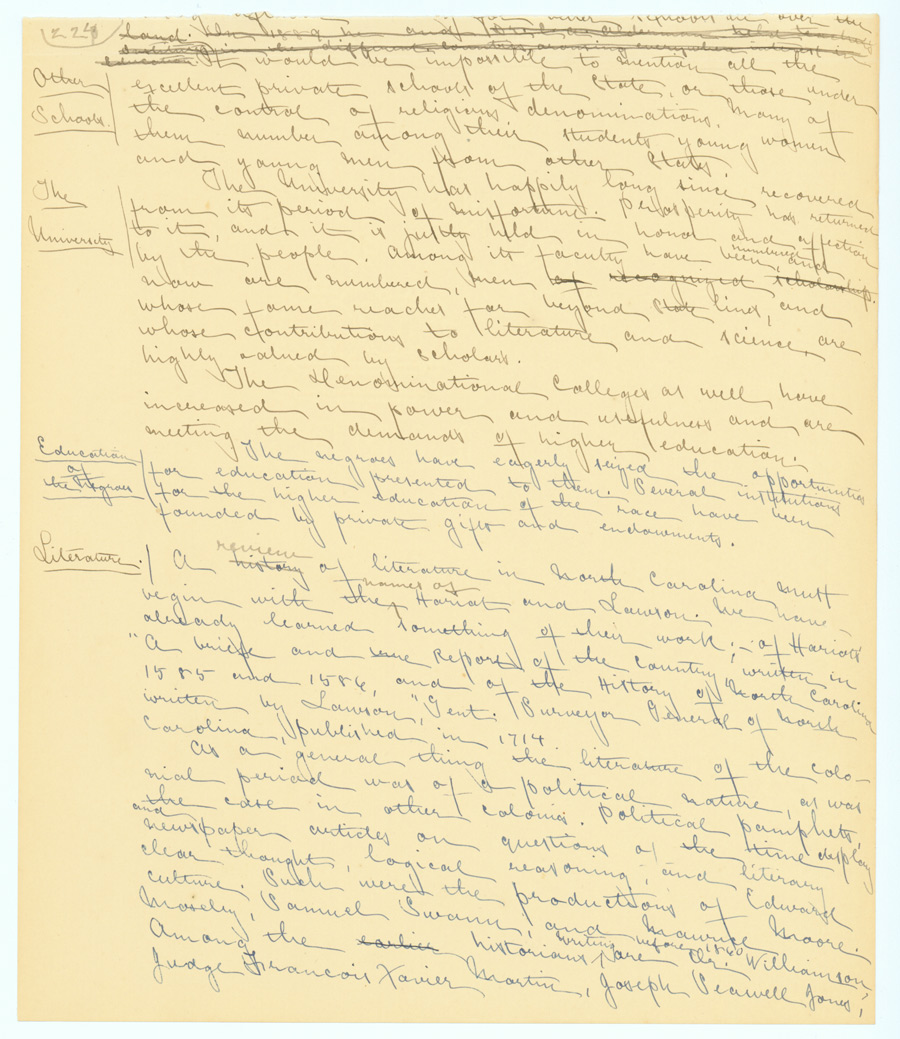 224
land.
education. It would be impossible to mention all the
Other excellent private schools of the State, or those under
Schools. the control of religious denominations. Many of
them number among their students young women
and young men from other States.
The University has happily long since recovered
The from its period of misfortune. Prosperity has returned
University to it, and it is justly held in honor and affection
by the people. Among its faculty have been numbered, and
now are numbered, men of recognized scholarship.
whose fame reaches far beyond State lines, and
whose contributions to literature and science, are
highly valued by scholars.
The Denominational Colleges as well have
increased in power and usefulness and are
meeting the demands of higher education.
Education The negroes have eagerly seized the opportunities
of for education presented to them. Several institutions
the Negroes for the higher education of the race have been
founded by private gifts and endowments.
Literature. A history review of literature in North Carolina must
begin with the names of Hariot and Lawson. We have
already learned something of their work; - of Hariot's
"A briefe and true Report of the Country," written in
1585 and 1586, and of the History of North Carolina
written by Lawson, "Gent. Surveyor General of North
Carolina, published in 1714.
As a general thing the literature of the colo-
nial period was of a political nature, as was
the case in other colonies. Political pamphlets
and newspaper articles on questions of the time display
clear thought, logical reasoning, and literary
culture. Such were the productions of Edward
Mosely, Samuel Swann, and Maurice Moore.
Among the earlier historians writing before 1860 are Dr. Williamson,
Judge Francois Xavier Martin, Joseph Seawell Jones,